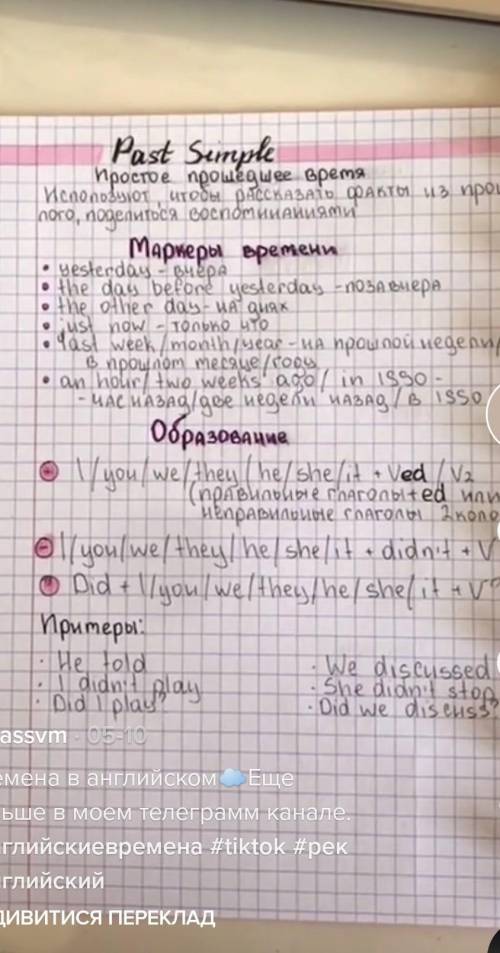 Past Simple
Простое прошедшее время
Используют, чтобы рассказать факты из прош
лого, поделиться воспоминаниями
Маркеры времени
• yesterday - вчера
• the day before yesterday - позавчера
• the other day - на днях
• just now - только что
• last week/month/year - на прошлой неделе/
в прошлом месяце/году
• an hour/ two weeks ago/ in 1990 -
- час назад/две недели назад/ в 1990
Образование
+ I/you/we/they/he/she/it + Ved / V2
(правильные глаголы+ed или
неправильные глаголы 2коло
- I/you/we/they/he/she/it + didn't + V
? Did + I/you/we/they/he/she/it + V
Примеры:
· He told
· I didn't play
· Did I play?
· We discussed
· She didn't stop
· Did we discuss?
assvm · 05-10
емена в английском☁️Еще
ьше в моем телеграмм канале.
нглийскиевремена #tiktok #рек
нглийский
ДИВИТИСЯ ПЕРЕКЛАД